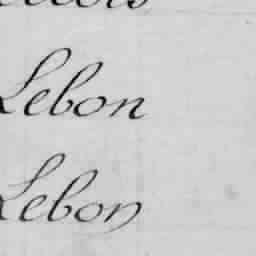 Lebon
Lebon